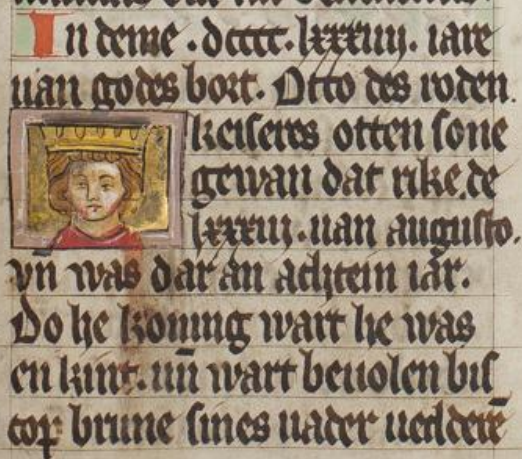 In deme . dcccc . lxxxiiij . iare
uan godes bort . Otto des roden
keiseres otten sone
gewan dat rike . de
lxxxiij . uan augusto .
vn̄ was dar an achtein iar .
Do he koning wart he was
en kint . uñ wart beuolen bis
cop brune sines uader ueddere